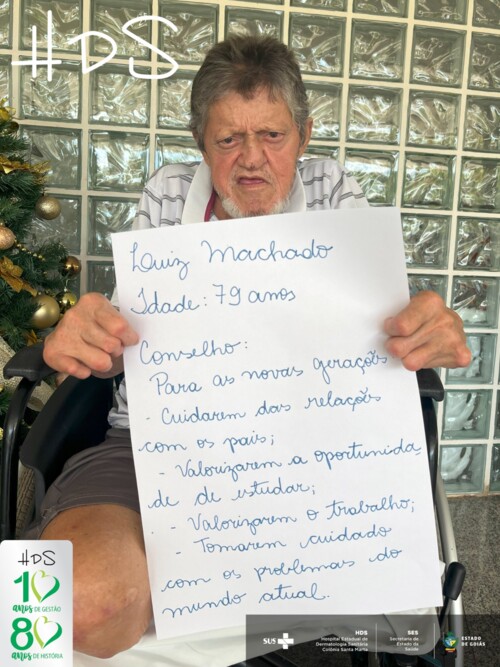 HDS
Luiz Machado
Idade: 79 anos
Conselho:
Para as novas gerações
- Cuidarem das relações
com os pais;
- Valorizarem a oportunida
de de estudar;
- Valorizarem o trabalho;
- Tomarem cuidado
com os problemas do
mundo atual.
HDS
10
anos DE GESTÃO
80
anos DE HISTÓRIA
SUS
HDS
Hospital Estadual de
Dermatologia Sanitária
Colônia Santa Marta
SES
Secretaria de
Estado da
Saúde
ESTADO
DE GOIÁS